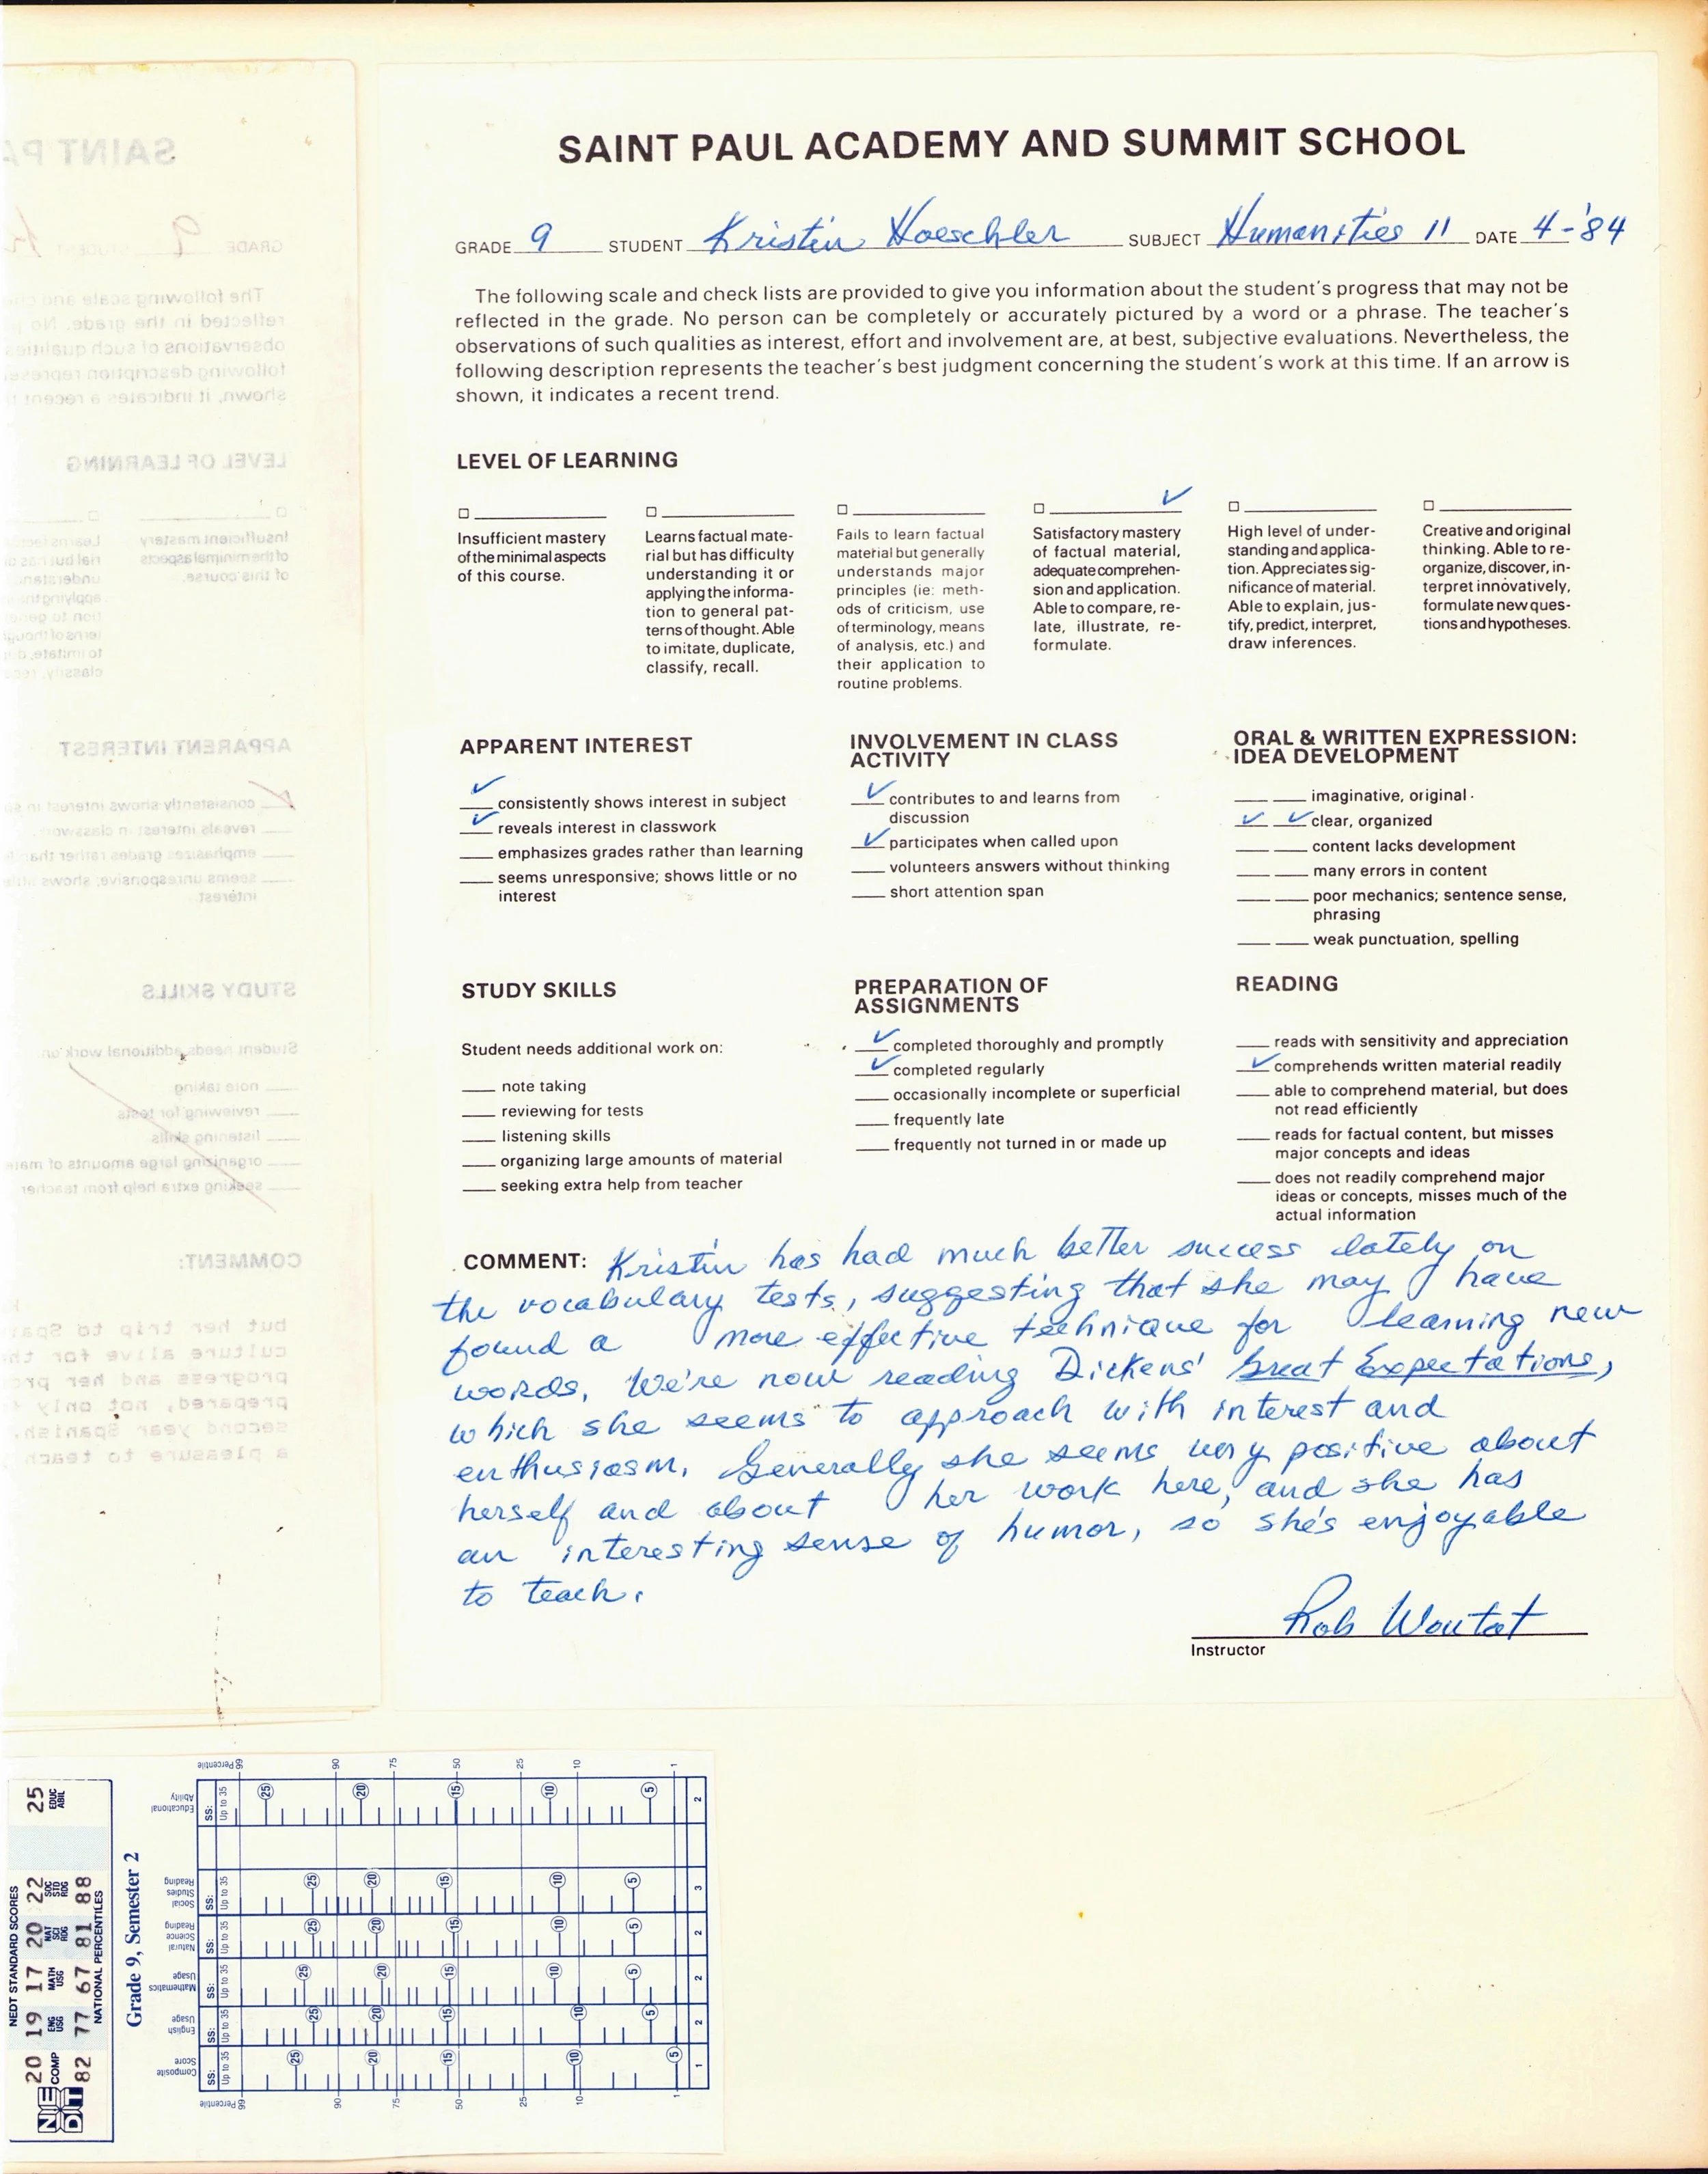 SAINT PAUL ACADEMY AND SUMMIT SCHOOL
GRADE 9 STUDENT Kristin Hoeschler SUBJECT Humanities 11 DATE 4-'84
The following scale and check lists are provided to give you information about the student's progress that may not be
reflected in the grade. No person can be completely or accurately pictured by a word or a phrase. The teacher's
observations of such qualities as interest, effort and involvement are, at best, subjective evaluations. Nevertheless, the
following description represents the teacher's best judgment concerning the student's work at this time. If an arrow is
shown, it indicates a recent trend.
LEVEL OF LEARNING
Insufficient mastery
of the minimal aspects
of this course.
Learns factual mate-
rial but has difficulty
understanding it or
applying the informa-
tion to general pat-
terns of thought. Able
to imitate, duplicate,
classify, recall.
Fails to learn factual
material but generally
understands major
principles (ie: meth-
ods of criticism, use
of terminology, means
of analysis, etc.) and
their application to
routine problems.
✓
Satisfactory mastery
of factual material,
adequate comprehen-
sion and application.
Able to compare, re-
late, illustrate, re-
formulate.
High level of under-
standing and applica-
tion. Appreciates sig-
nificance of material.
Able to explain, jus-
tify, predict, interpret,
draw inferences.
Creative and original
thinking. Able to re-
organize, discover, in-
terpret innovatively,
formulate new ques-
tions and hypotheses.
APPARENT INTEREST
✓ consistently shows interest in subject
✓ reveals interest in classwork
emphasizes grades rather than learning
seems unresponsive; shows little or no
interest
INVOLVEMENT IN CLASS
ACTIVITY
✓ contributes to and learns from
discussion
✓ participates when called upon
volunteers answers without thinking
short attention span
ORAL & WRITTEN EXPRESSION:
IDEA DEVELOPMENT
imaginative, original
✓ ✓ clear, organized
content lacks development
many errors in content
poor mechanics; sentence sense,
phrasing
weak punctuation, spelling
STUDY SKILLS
Student needs additional work on:
note taking
reviewing for tests
listening skills
organizing large amounts of material
seeking extra help from teacher
PREPARATION OF
ASSIGNMENTS
✓ completed thoroughly and promptly
✓ completed regularly
occasionally incomplete or superficial
frequently late
frequently not turned in or made up
READING
reads with sensitivity and appreciation
✓ comprehends written material readily
able to comprehend material, but does
not read efficiently
reads for factual content, but misses
major concepts and ideas
does not readily comprehend major
ideas or concepts, misses much of the
actual information
COMMENT: Kristin has had much better success lately on
the vocabulary tests, suggesting that she may have
found a more effective technique for learning new
words. We're now reading Dickens' Great Expectations,
which she seems to approach with interest and
enthusiasm. Generally she seems very positive about
herself and about her work here, and she has
an interesting sense of humor, so she's enjoyable
to teach.
Rob Woutat
Instructor
NEDT STANDARD SCORES
20 19 17 20 22 25
COMP ENG USG MATH USG NAT SCI RDG SOC STD RDG EDUC ABIL
82 77 67 81 88
NATIONAL PERCENTILES
NEDT
Grade 9, Semester 2
Percentile 99 90 75 50 25 10 1
Educational Ability SS: Up to 35 25 20 15 10 5 2
Social Studies Reading SS: Up to 35 25 20 15 10 5 3
Natural Science Reading SS: Up to 35 25 20 15 10 5 2
Mathematics Usage SS: Up to 35 25 20 15 10 5 2
English Usage SS: Up to 35 25 20 15 10 5 2
Composite Score SS: Up to 35 25 20 15 10 5 1
Percentile 99 90 75 50 25 10 1